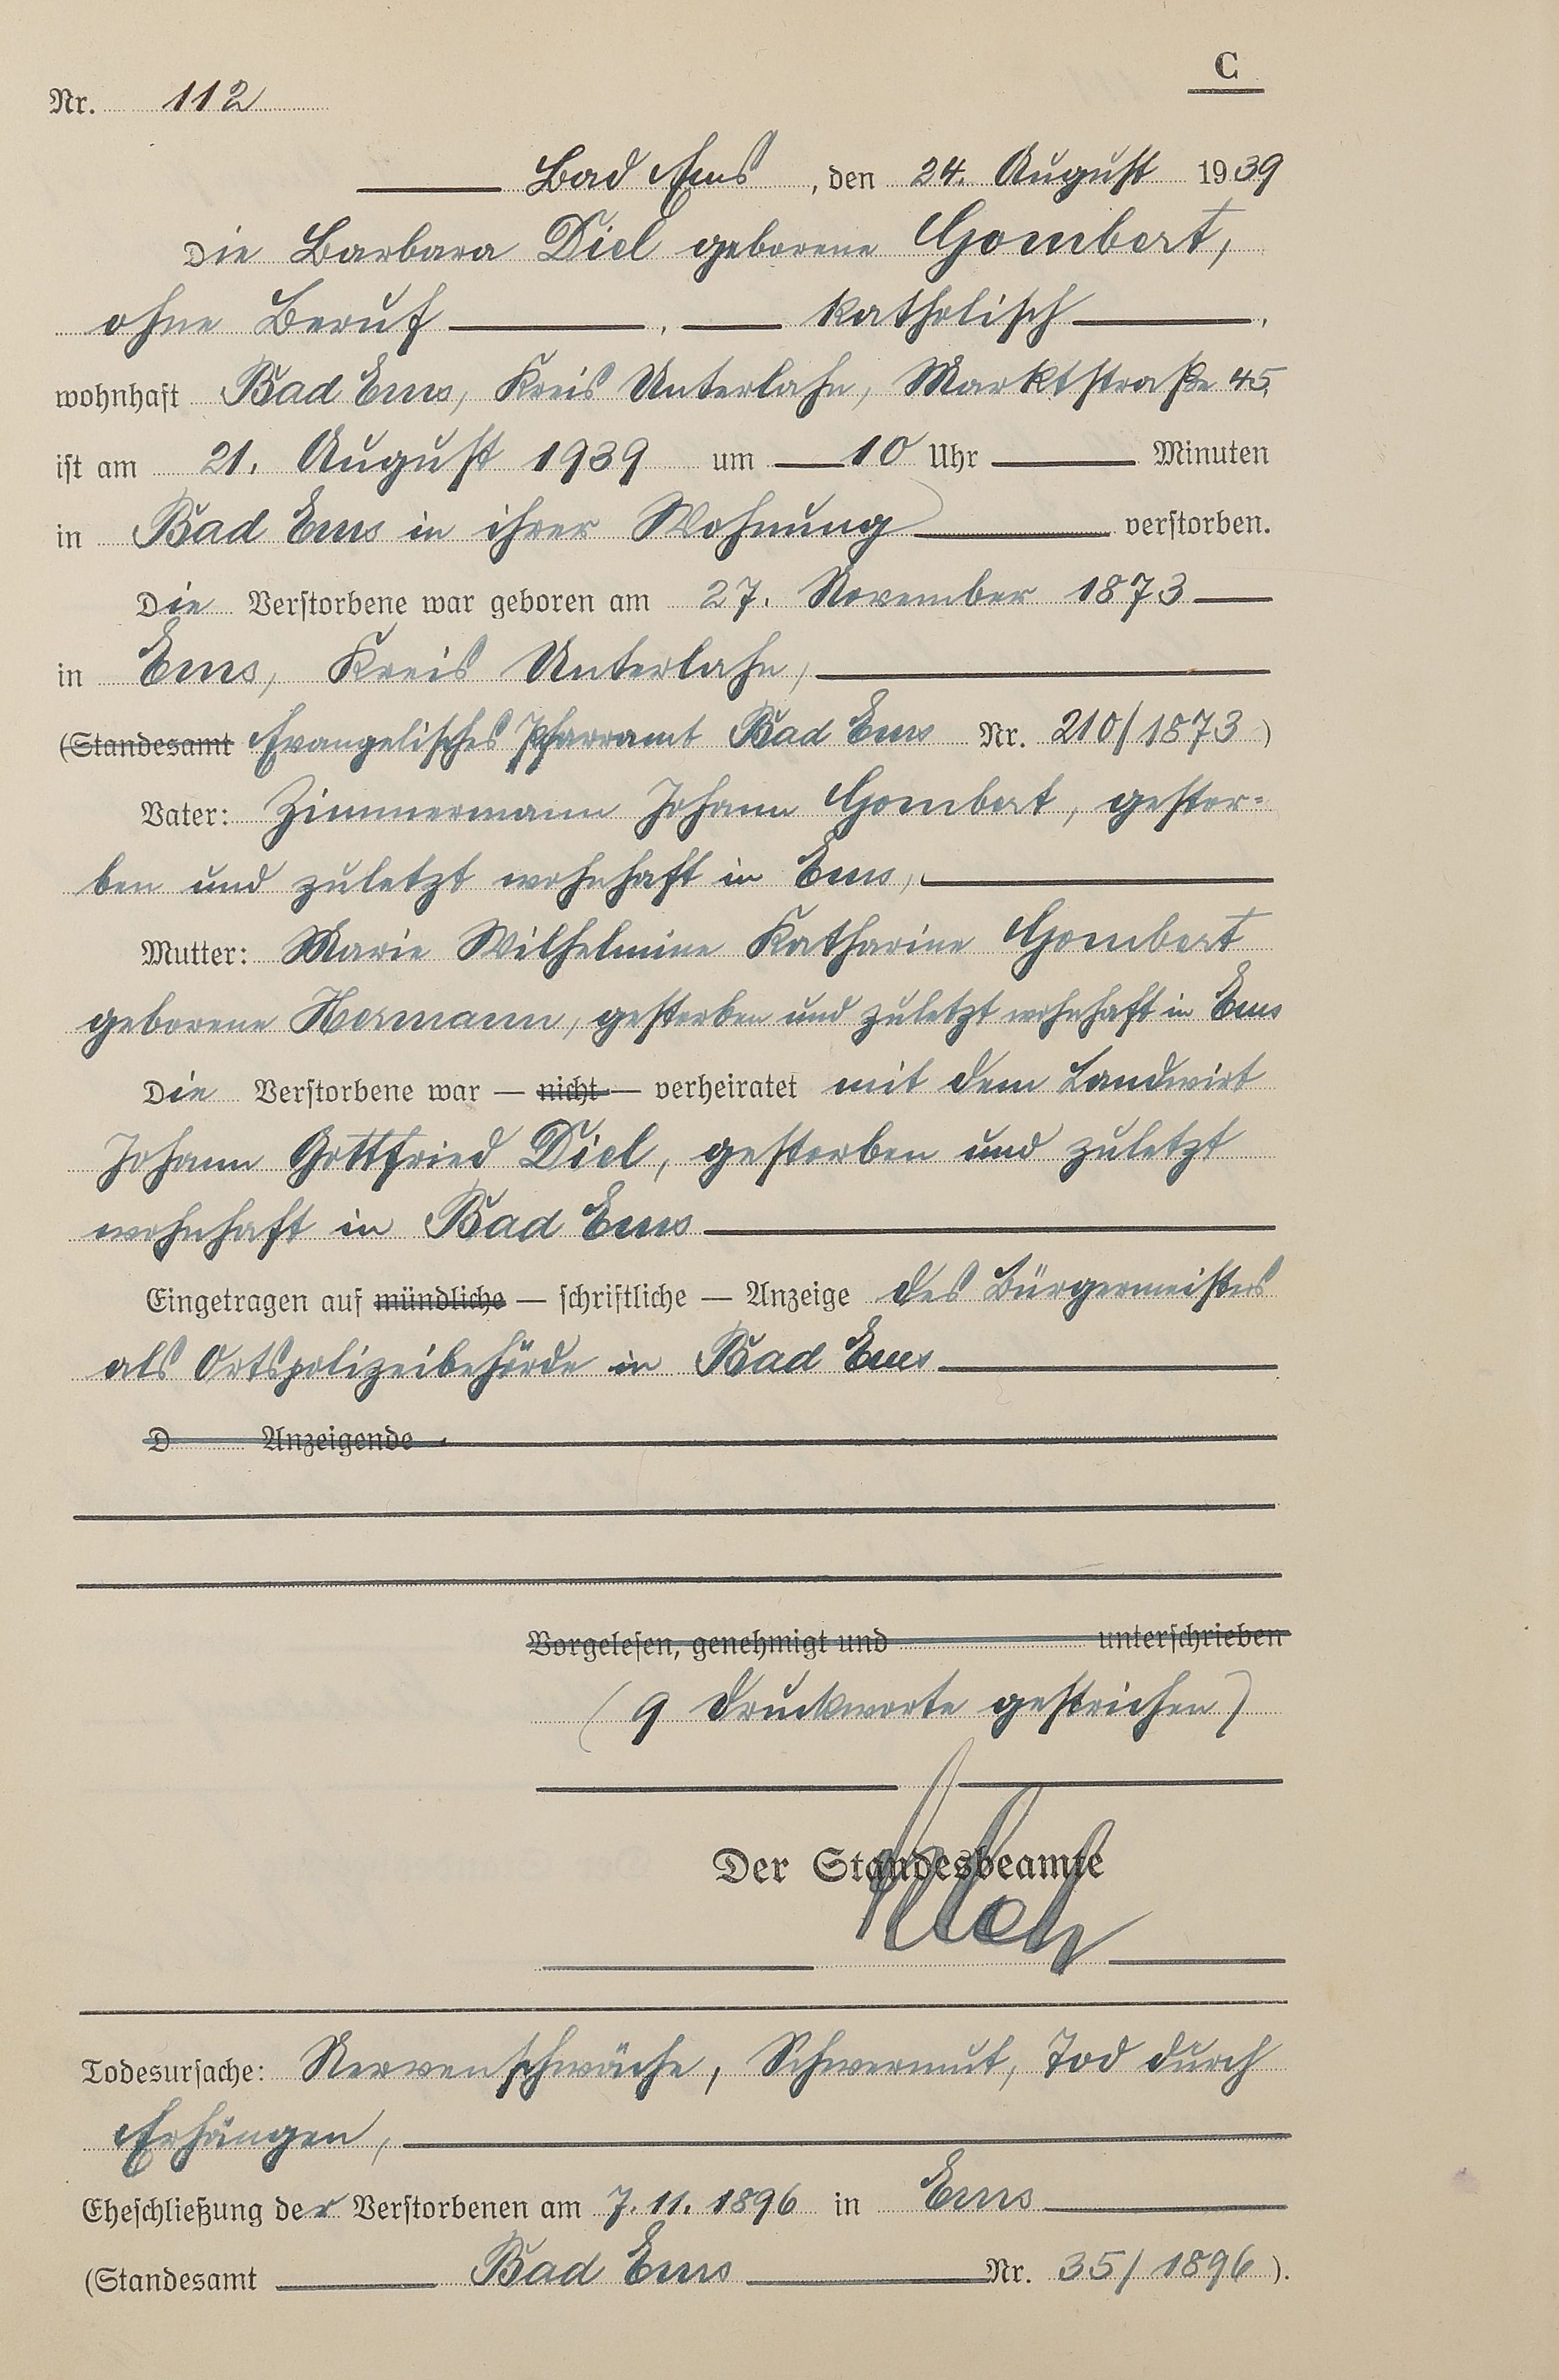 C
Nr. 112
Bad Ems, den 24. August 1939
Die Barbara Diel geborene Gombert,
ohne Beruf, katholisch,
wohnhaft Bad Ems, Kreis Unterlahn, Marktstraße 45,
ist am 21. August 1939 um 10 Uhr Minuten
in Bad Ems in ihrer Wohnung verstorben.
Die Verstorbene war geboren am 27. November 1873
in Ems, Kreis Unterlahn,
(Standesamt Evangelisches Pfarramt Bad Ems Nr. 210/1873)
Vater: Zimmermann Johann Gombert, gestor-
ben und zuletzt wohnhaft in Ems,
Mutter: Marie Wilhelmine Katharine Gombert
geborene Hermann, gestorben und zuletzt wohnhaft in Ems
Die Verstorbene war — nicht — verheiratet mit dem Landwirt
Johann Gottfried Diel, gestorben und zuletzt
wohnhaft in Bad Ems
Eingetragen auf mündliche — schriftliche — Anzeige des Bürgermeisters
als Ortspolizeibehörde in Bad Ems
D Anzeigende
Vorgelesen, genehmigt und unterschrieben
(9 Druckworte gestrichen)
Der Standesbeamte
Todesursache: Nervenschwäche, Schwermut, Tod durch
Erhängen,
Eheschließung der Verstorbenen am 7.11.1896 in Ems
(Standesamt Bad Ems Nr. 35/1896).